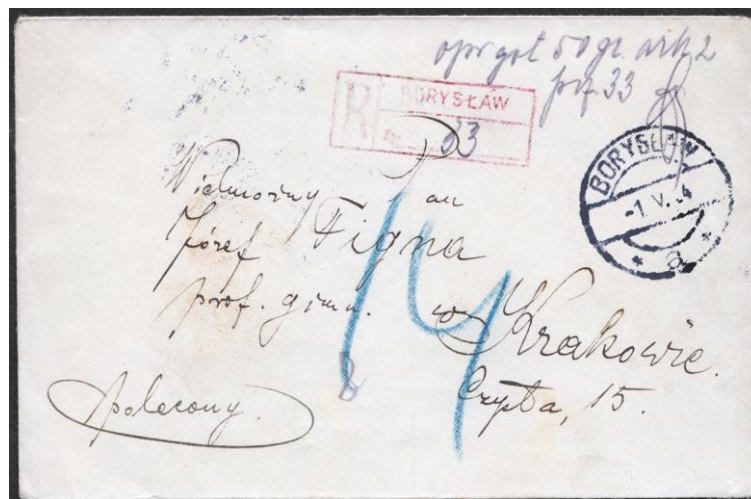 opr got 50 gr. ark 2
poz 33
R BORYSŁAW
No 33
BORYSŁAW
-1.V.24
* a *
Wielmożny Pan
Józef Figna
prof. gimn.
w Krakowie.
Czysta, 15.
polecony.
14